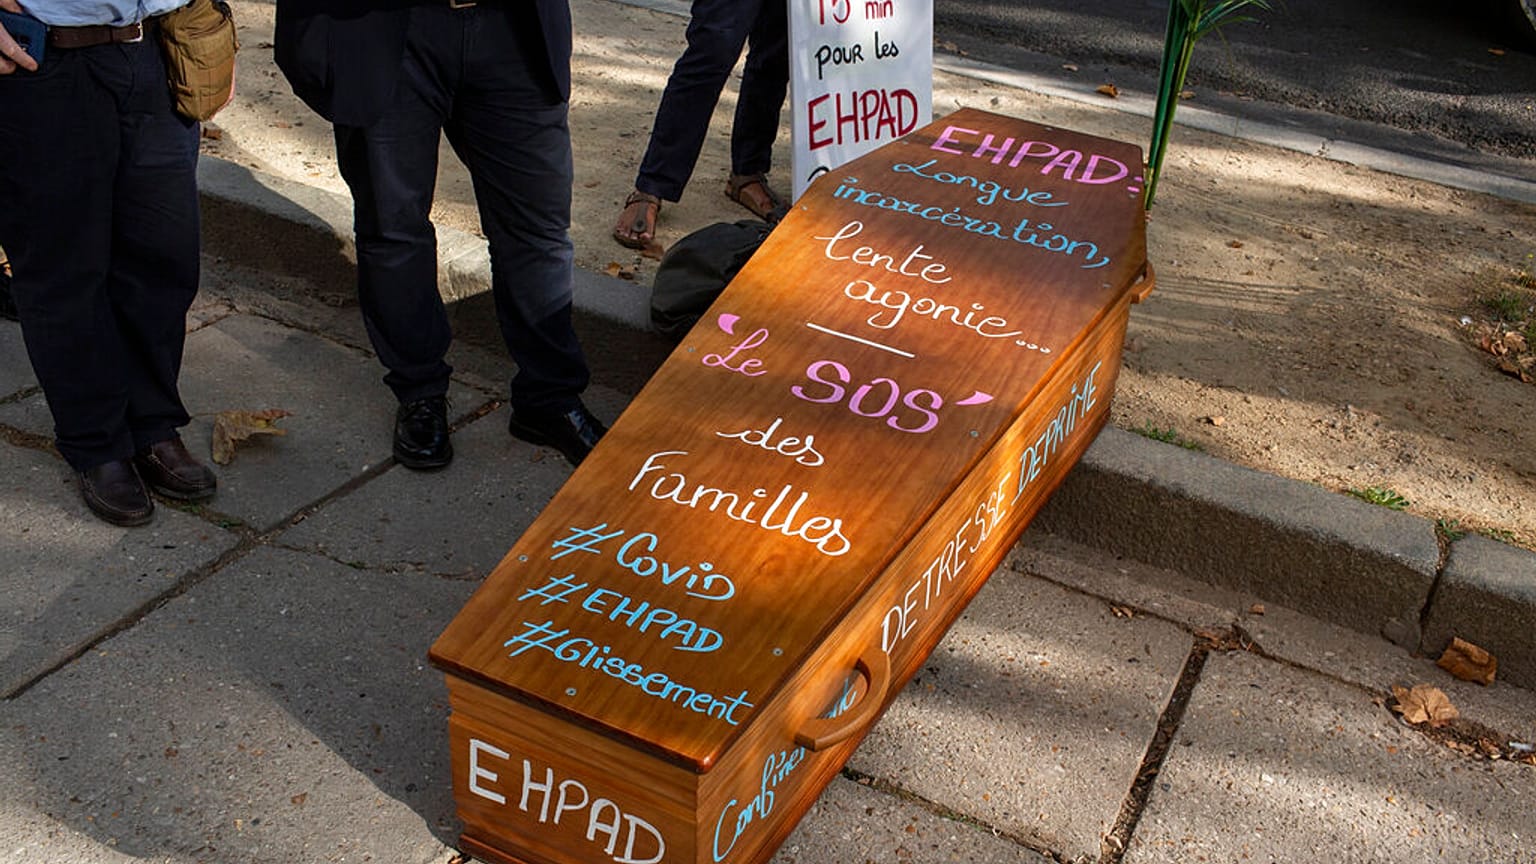 15 min
pour les
EHPAD
EHPAD:
Longue
incarcération,
lente
agonie...
'Le SOS'
des
Familles
#Covid
#EHPAD
#Glissement
DETRESSE DEPRIME
EHPAD